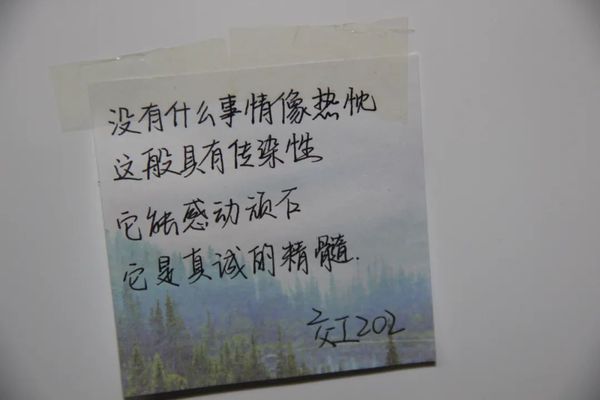 没有什么事情像热忱
这般具有传染性
它能感动顽石
它是真诚的精髓.
交工202